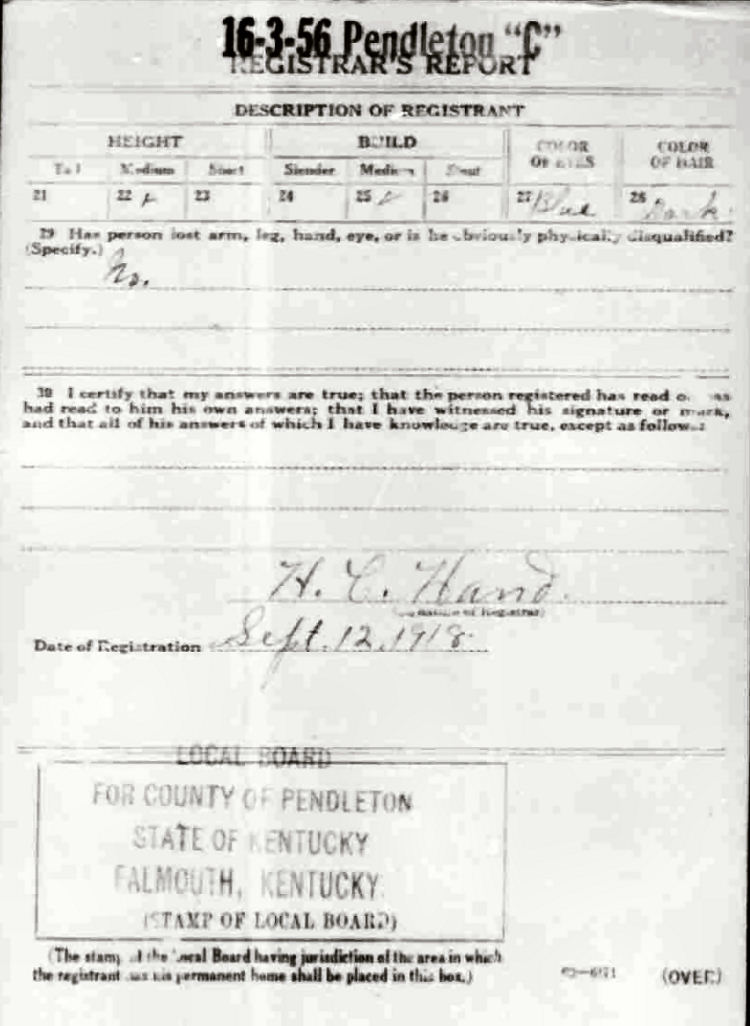 16-3-56 Pendleton "C"
REGISTRAR'S REPORT
DESCRIPTION OF REGISTRANT
HEIGHT BUILD COLOR OF EYES COLOR OF HAIR
Tall Medium Short Slender Medium Stout
21 22 23 24 25 26 27 Blue 28 Dark
29 Has person lost arm, leg, hand, eye, or is he obviously physically disqualified?
(Specify.)
No.
30 I certify that my answers are true; that the person registered has read or has
had read to him his own answers; that I have witnessed his signature or mark,
and that all of his answers of which I have knowledge are true, except as follows:
H. C. Hand.
(Signature of Registrar)
Date of Registration Sept. 12, 1918.
LOCAL BOARD
FOR COUNTY OF PENDLETON
STATE OF KENTUCKY
FALMOUTH, KENTUCKY.
(STAMP OF LOCAL BOARD)
(The stamp of the Local Board having jurisdiction of the area in which
the registrant has his permanent home shall be placed in this box.)
(OVER)